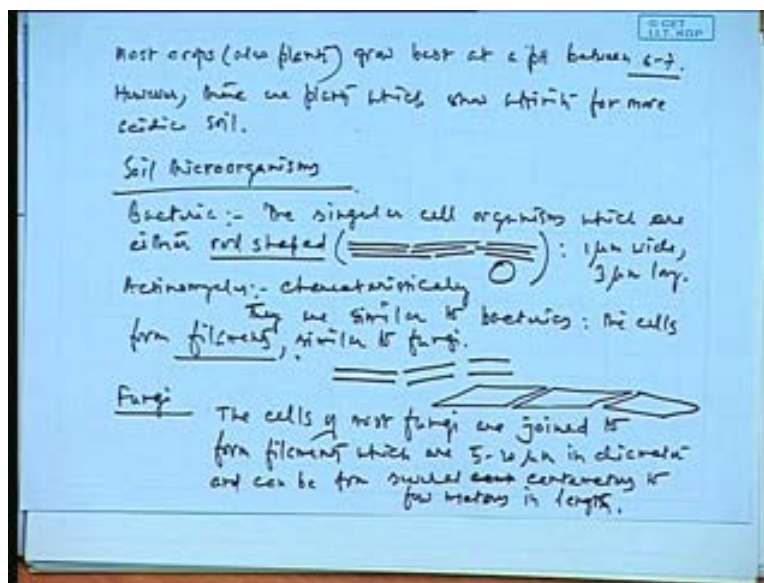 © CET
I.I.T. KGP
Most crops (also plants) grow best at a pH between 6-7.
However, there are plants which show affinity for more
acidic soil.
Soil Microorganisms
Bacteria:- The singular cell organisms which are
either rod shaped ( ) : 1 μm wide,
3 μm long.
Actinomycetes:- characteristically
They are similar to bacterias : The cells
form filaments, similar to fungi.
Fungi
The cells of most fungi are joined to
form filaments which are 5-20 μm in diameter
and can be from several centimeters to
few meters in length.